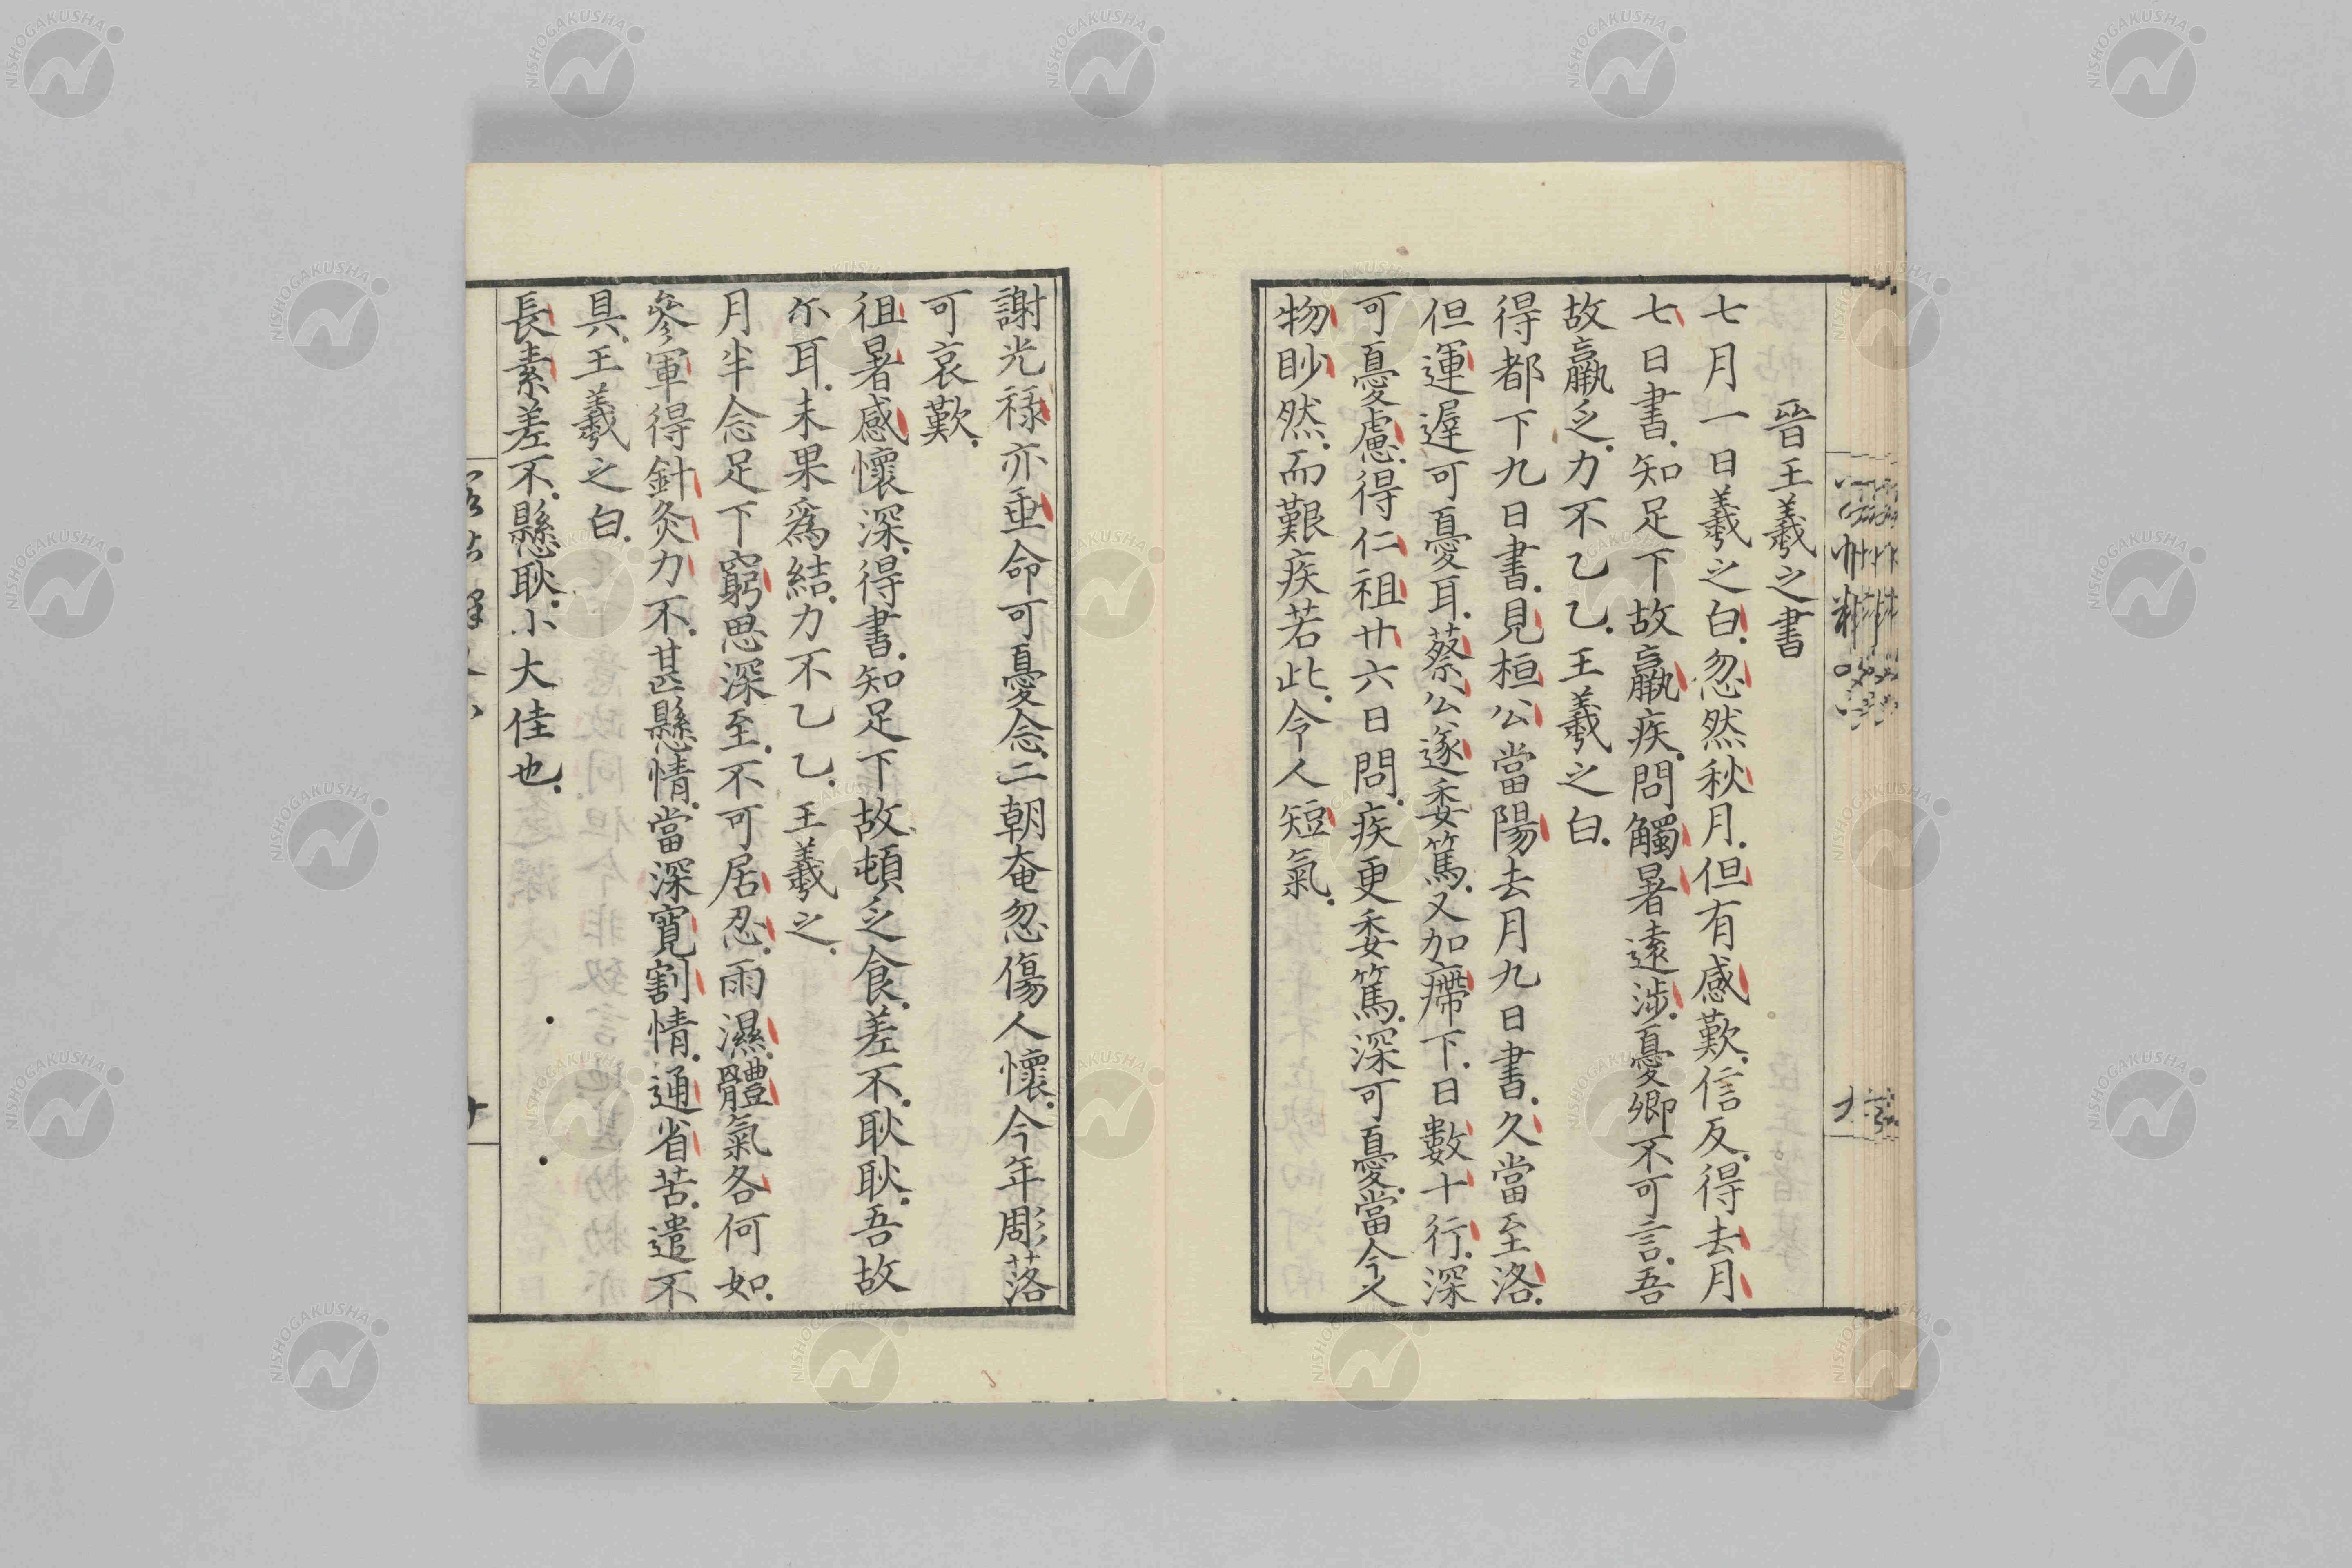 晉王羲之書
七月一日羲之白.忽然秋月.但有感歎.信反.得去月
七日書.知足下故羸疾.問觸暑遠涉.憂卿不可言.吾
故羸乏.力不乙乙.王羲之白.
得都下九日書.見桓公當陽去月九日書.久當至洛.
但運遲可憂耳.蔡公遂委篤.又加㿃下.日數十行.深
可憂慮.得仁祖廿六日問.疾更委篤.深可憂.當今人
物眇然.而艱疾若此.令人短氣.
謝光祿亦垂命可憂念.二朝奄忽傷人懷.今年彫落
可哀歎.
徂暑感懷深.得書.知足下故頓乏食.差不.耿耿.吾故
尓耳.未果爲結.力不乙乙.王羲之.
月半念足下窮思深至.不可居忍.雨濕體氣各何如.
參軍得針灸力不.甚懸情.當深寬割情.通省苦.遣不
具.王羲之白.
長素差不.懸耿.小大佳也.
NISHOGAKUSHA